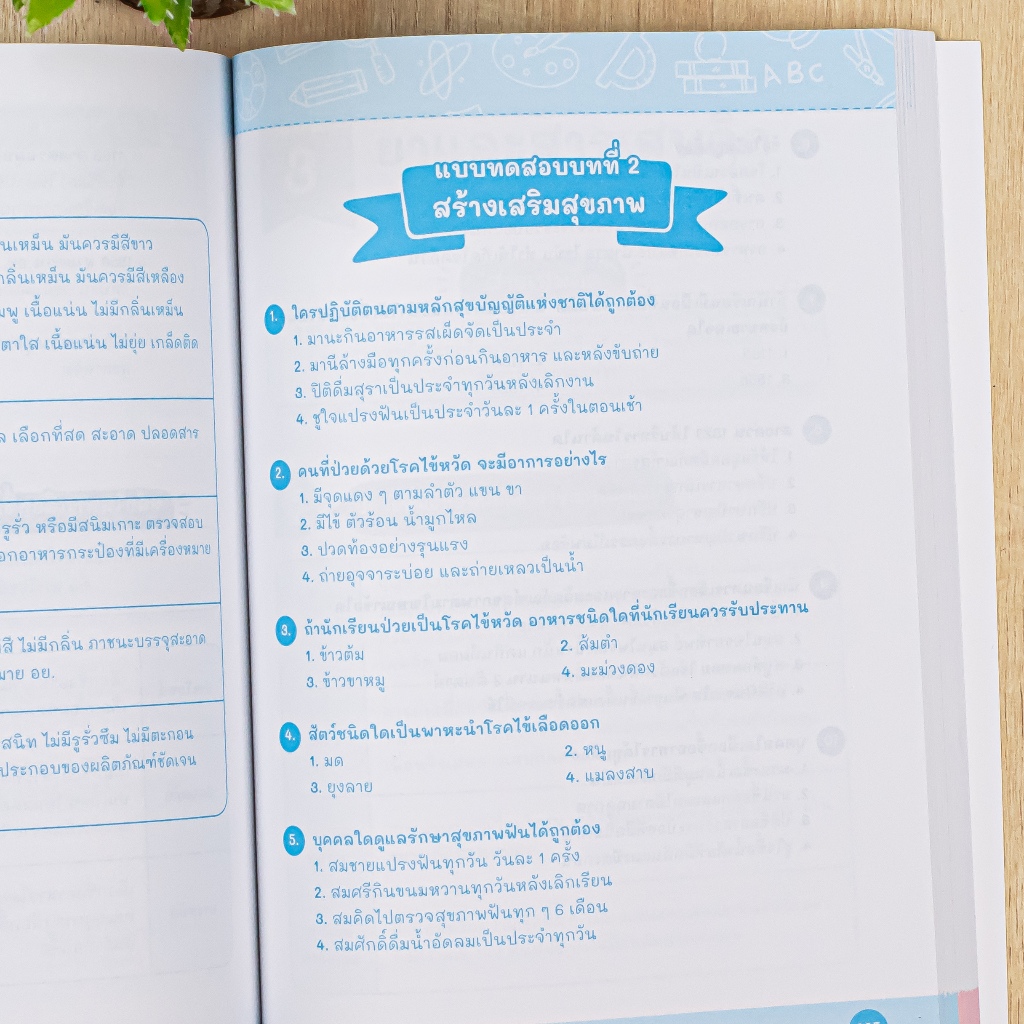 นเหม็น มันควรมีสีขาว
กลิ่นเหม็น มันควรมีสีเหลือง
มพู เนื้อแน่น ไม่มีกลิ่นเหม็น
ตาใส เนื้อแน่น ไม่ยุ่ย เกล็ดติด
ล เลือกที่สด สะอาด ปลอดสาร
รูรั่ว หรือมีสนิมเกาะ ตรวจสอบ
อกอาหารกระป๋องที่มีเครื่องหมาย
สี ไม่มีกลิ่น ภาชนะบรรจุสะอาด
มาย อย.
สนิท ไม่มีรูรั่วซึม ไม่มีตะกอน
ประกอบของผลิตภัณฑ์ชัดเจน
ABC
แบบทดสอบบทที่ 2
สร้างเสริมสุขภาพ
1. ใครปฏิบัติตนตามหลักสุขบัญญัติแห่งชาติได้ถูกต้อง
1. มานะกินอาหารรสเผ็ดจัดเป็นประจำ
2. มานีล้างมือทุกครั้งก่อนกินอาหาร และหลังขับถ่าย
3. ปิติดื่มสุราเป็นประจำทุกวันหลังเลิกงาน
4. ชูใจแปรงฟันเป็นประจำวันละ 1 ครั้งในตอนเช้า
2. คนที่ป่วยด้วยโรคไข้หวัด จะมีอาการอย่างไร
1. มีจุดแดง ๆ ตามลำตัว แขน ขา
2. มีไข้ ตัวร้อน น้ำมูกไหล
3. ปวดท้องอย่างรุนแรง
4. ถ่ายอุจจาระบ่อย และถ่ายเหลวเป็นน้ำ
3. ถ้านักเรียนป่วยเป็นโรคไข้หวัด อาหารชนิดใดที่นักเรียนควรรับประทาน
1. ข้าวต้ม 2. ส้มตำ
3. ข้าวขาหมู 4. มะม่วงดอง
4. สัตว์ชนิดใดเป็นพาหะนำโรคไข้เลือดออก
1. มด 2. หนู
3. ยุงลาย 4. แมลงสาบ
5. บุคคลใดดูแลรักษาสุขภาพฟันได้ถูกต้อง
1. สมชายแปรงฟันทุกวัน วันละ 1 ครั้ง
2. สมศรีกินขนมหวานทุกวันหลังเลิกเรียน
3. สมคิดไปตรวจสุขภาพฟันทุก ๆ 6 เดือน
4. สมศักดิ์ดื่มน้ำอัดลมเป็นประจำทุกวัน